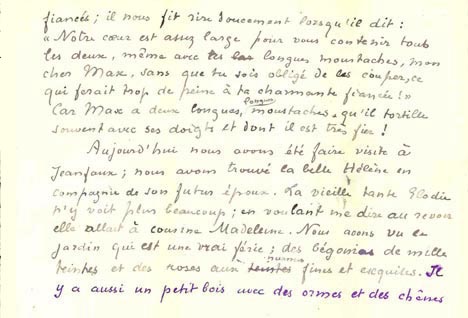 fiancés ; il nous fit rire doucement lorsqu'il dit :
« Notre cœur est assez large pour vous contenir tous
les deux, même avec tes longues moustaches, mon
cher Max, sans que tu sois obligé de les couper, ce
qui ferait trop de peine à ta charmante fiancée ! »
Car Max a deux longues, longues moustaches, qu'il tortille
souvent avec ses doigts et dont il est très fier !
Aujourd'hui nous avons été faire visite à
Jeanfaux ; nous avons trouvé la belle Hélène en
compagnie de son futur époux. La vieille tante Elodie
n'y voit plus beaucoup ; en voulant me dire au revoir
elle allait à cousine Madeleine. Nous avons vu le
jardin qui est une vrai férie ; des bégonias de mille
teintes et des roses aux teintes nuances fines et exequiles. Il
y a aussi un petit bois avec des ormes et des chênes